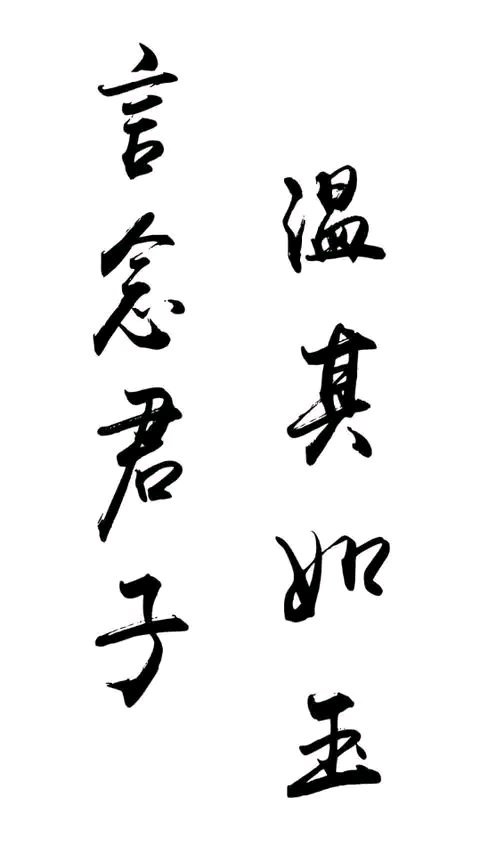 言念君子
温其如玉